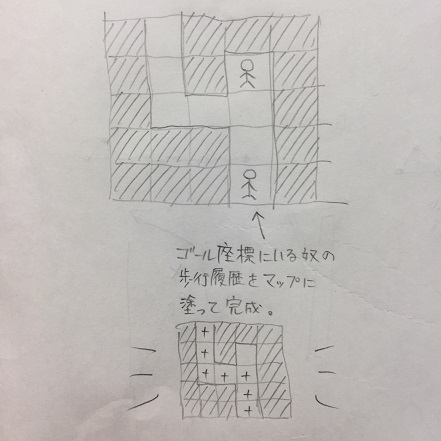 ゴール座標にいる奴の
歩行履歴をマップに
塗って完成。